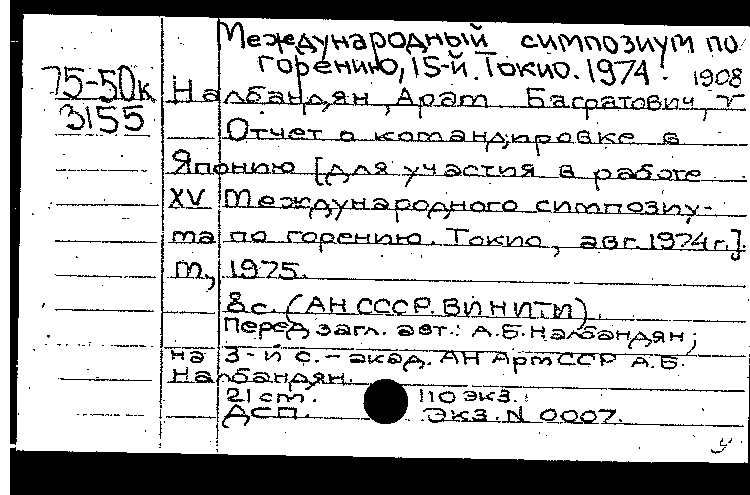 Международный симпозиум по
горению, 15-й. Токио. 1974.
75-50к
3155
1908
Налбандян, Арам Багратович, г
Отчет о командировке в
Японию [для участия в работе
XV Международного симпозиу-
ма по горению. Токио, авг. 1974 г.].
М., 1975.
8 с. (АН СССР. ВИНИТИ).
Перед загл. авт.: А.Б. Налбандян;
на 3-й с. - акад. АН АрмССР А.Б.
Налбандян.
21 см. 110 экз.
ДСП. Экз. N 0007.
у